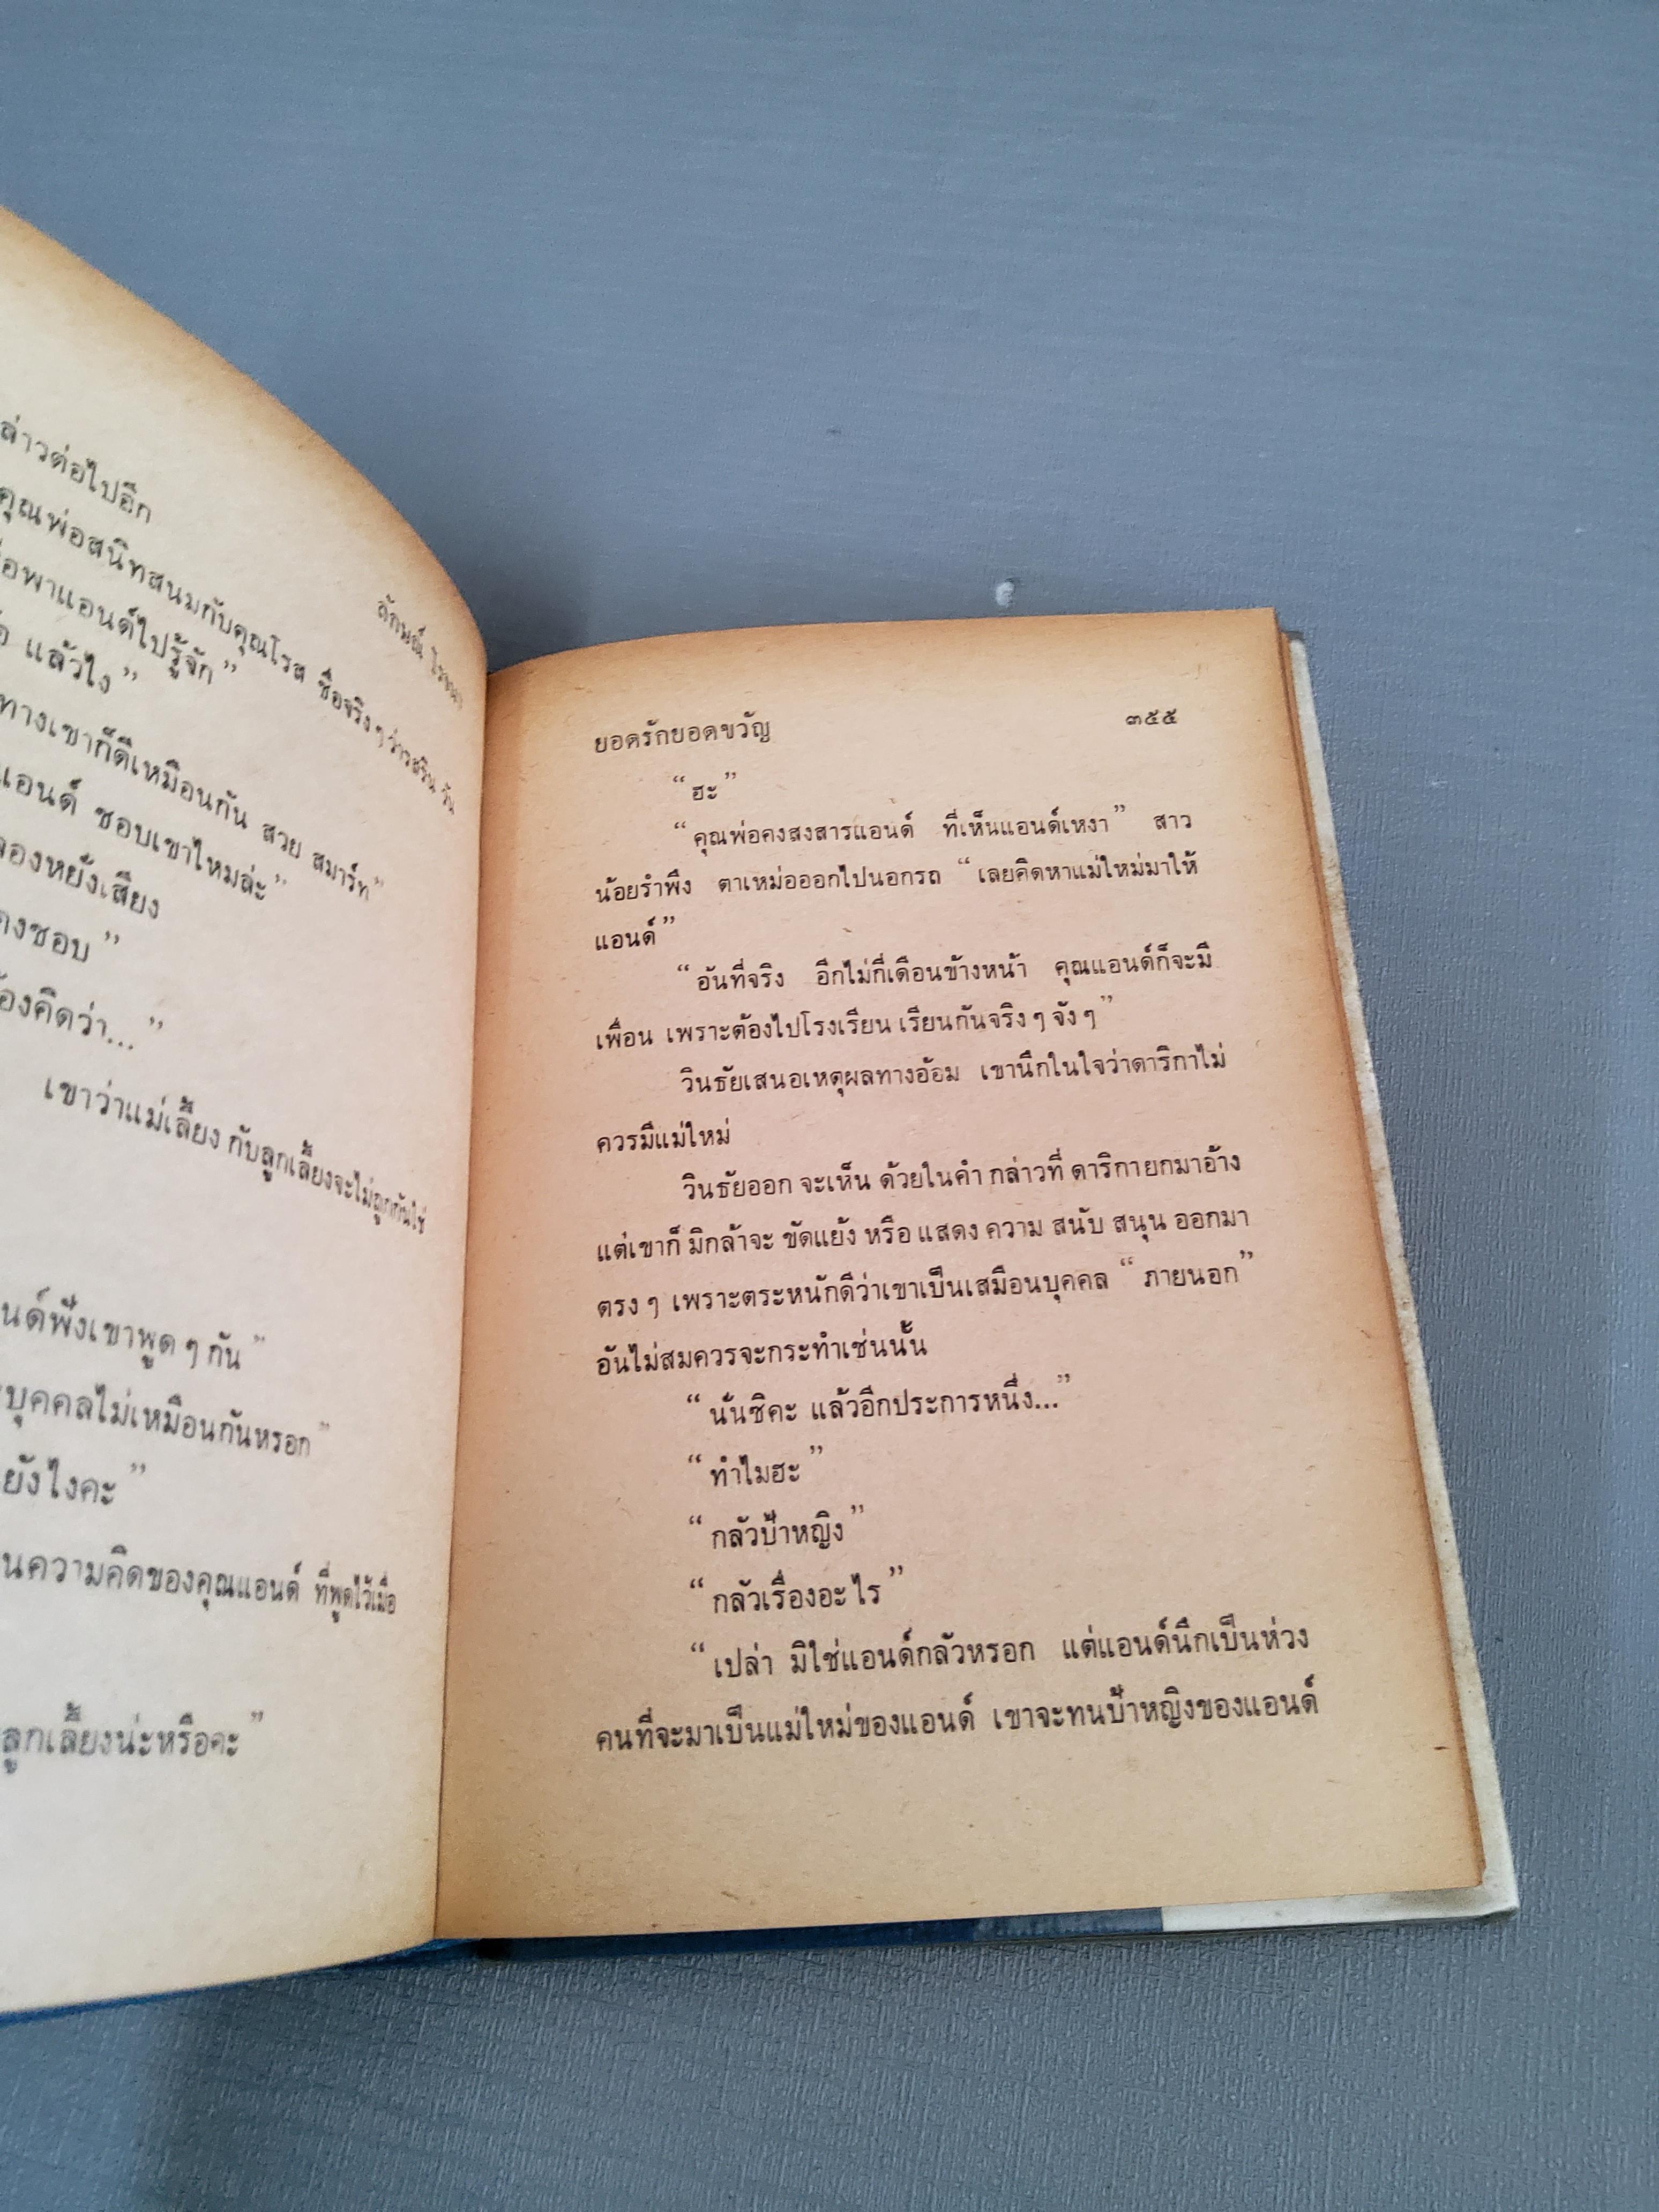 ลักษณ์ โรจนา
ล่าวต่อไปอีก
คุณพ่อสนิทสนมกับคุณโรส ชื่อจริง ๆ ว่าวสริน
อพาแอนด์ไปรู้จัก”
แล้วไง”
ทางเขาก็ดีเหมือนกัน สวย สมาร์ท”
แอนด์ ชอบเขาไหมล่ะ”
ลองหยั่งเสียง
คงชอบ”
องคิดว่า...”
เขาว่าแม่เลี้ยง กับลูกเลี้ยงจะไม่ถูกกันใช่
นด์ฟังเขาพูด ๆ กัน”
บุคคลไม่เหมือนกันหรอก”
ยังไงคะ”
นความคิดของคุณแอนด์ ที่พูดไว้เมื่อ
ลูกเลี้ยงน่ะหรือคะ”
ยอดรักยอดขวัญ ๓๕๕
“ฮะ”
“คุณพ่อคงสงสารแอนด์ ที่เห็นแอนด์เหงา” สาว
น้อยรำพึง ตาเหม่อออกไปนอกรถ “เลยคิดหาแม่ใหม่มาให้
แอนด์”
“อันที่จริง อีกไม่กี่เดือนข้างหน้า คุณแอนด์ก็จะมี
เพื่อน เพราะต้องไปโรงเรียน เรียนกันจริง ๆ จัง ๆ”
วินธัยเสนอเหตุผลทางอ้อม เขานึกในใจว่าดาริกาไม่
ควรมีแม่ใหม่
วินธัยออก จะเห็น ด้วยในคำ กล่าวที่ ดาริกายกมาอ้าง
แต่เขาก็ มิกล้าจะ ขัดแย้ง หรือ แสดง ความ สนับ สนุน ออกมา
ตรง ๆ เพราะตระหนักดีว่าเขาเป็นเสมือนบุคคล “ภายนอก”
อันไม่สมควรจะกระทำเช่นนั้น
“นั่นซิคะ แล้วอีกประการหนึ่ง...”
“ทำไมฮะ”
“กลัวป้าหญิง”
“กลัวเรื่องอะไร”
“เปล่า มิใช่แอนด์กลัวหรอก แต่แอนด์นึกเป็นห่วง
คนที่จะมาเป็นแม่ใหม่ของแอนด์ เขาจะทนป้าหญิงของแอนด์